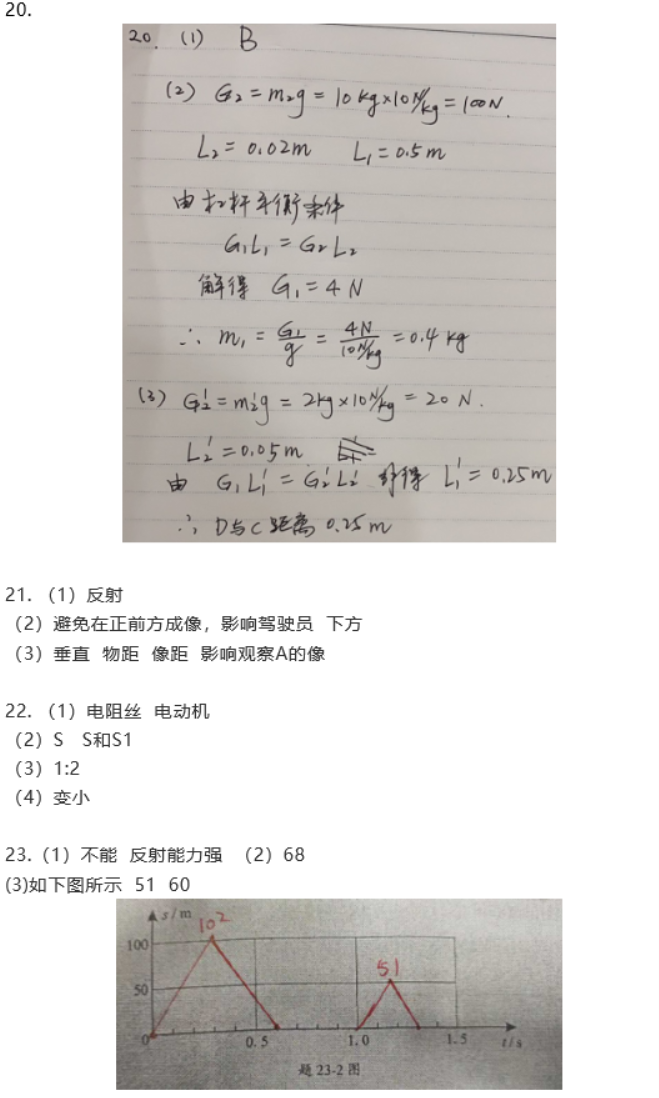 20.
20. (1) B
(2) G₂ = m₂g = 10kg×10N/kg = 100N.
L₂ = 0.02m L₁ = 0.5m
由杠杆平衡条件
G₁L₁ = G₂L₂
解得 G₁ = 4N
∴ m₁ = G₁/g = 4N/10N/kg = 0.4kg
(3) G₂' = m₂'g = 2kg×10N/kg = 20N.
L₂' = 0.05m
由 G₁L₁' = G₂'L₂' 解得 L₁' = 0.25m
∴ D与C距离 0.25m
21.（1）反射
（2）避免在正前方成像，影响驾驶员 下方
（3）垂直 物距 像距 影响观察A的像
22.（1）电阻丝 电动机
（2）S S和S1
（3）1:2
（4）变小
23.（1）不能 反射能力强 （2）68
(3)如下图所示 51 60
s/m
102
100
51
50
0 0.5 1.0 1.5 t/s
题 23-2 图